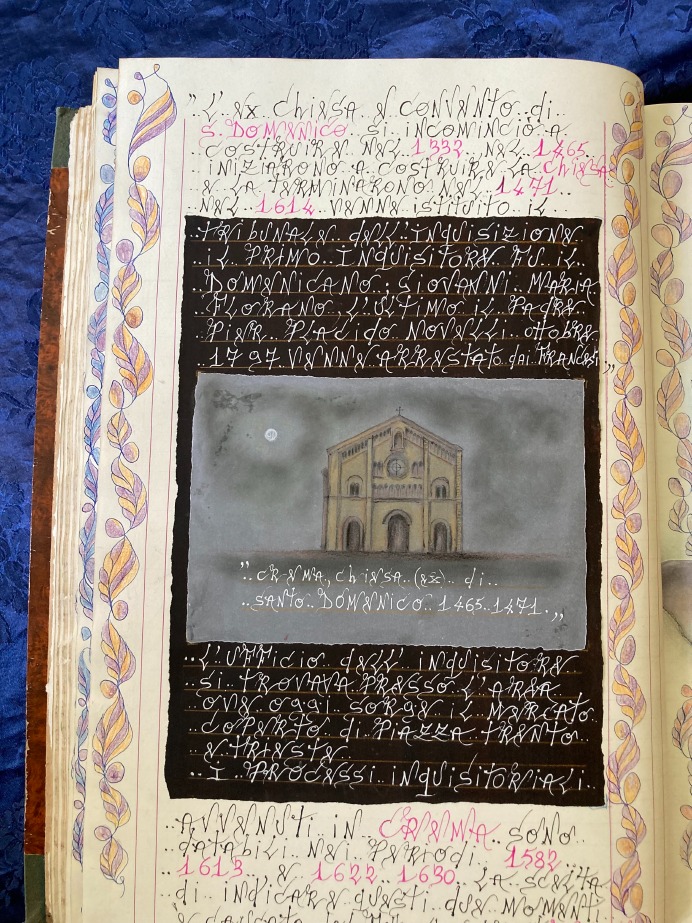 "L'ex chiesa e convento di
S. Domenico si incominciò a
costruire nel 1332 nel 1465
iniziarono a costruire la chiesa
e la terminarono nel 1471
nel 1614 venne istituito il
tribunale dell'inquisizione
il primo inquisitore fu il
domenicano, Giovanni Maria
Florano, l'ultimo il padre
Pier Placido Novelli ottobre
1797 venne arrestato dai francesi"
"Crema, chiesa (ex) di
Santo Domenico 1465-1471."
L'ufficio dell'inquisitore
si trovava presso l'area
ove oggi sorge il mercato
coperto di Piazza Trento
e Trieste
I processi inquisitoriali
avvenuti in Crema sono
databili nei periodi 1582
1613 e 1622 1630 la scelta
di indicare questi due momenti
e